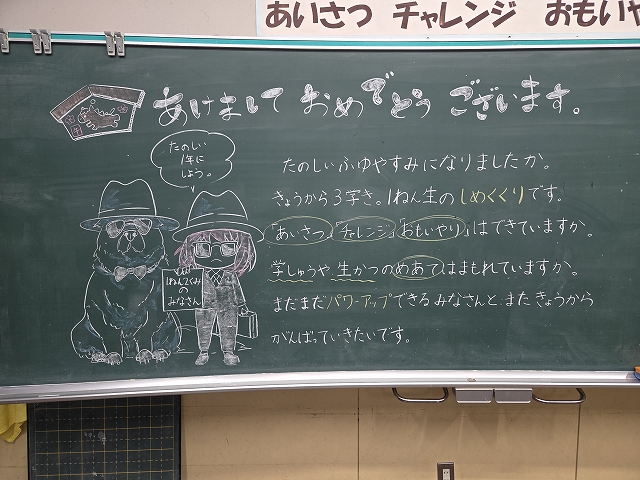 あいさつ チャレンジ おもいや
あけまして おめでとう ございます。
たのしい
1年に
しよう。
たのしいふゆやすみになりましたか。
きょうから3学き。1ねん生のしめくくりです。
「あいさつ」「チャレンジ」「おもいやり」はできていますか。
学しゅうや、生かつのめあてはまもれていますか。
まだまだパワーアップできるみなさんと、またきょうから
がんばっていきたいです。
1ねん2くみ
の
みなさん